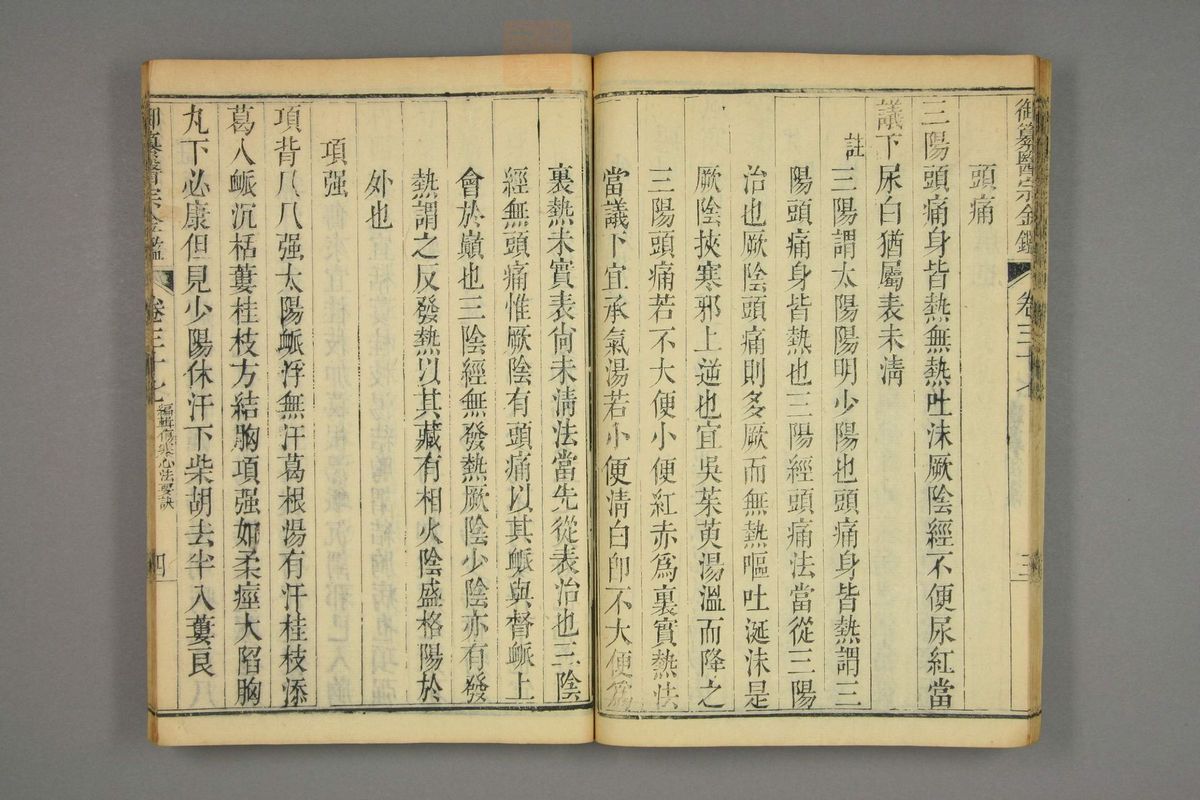 御纂醫宗金鑑 卷三十七 三
頭痛
三陽頭痛身皆熱無熱吐沫厥陰經不便尿紅當
議下尿白猶屬表未清
註
三陽謂太陽陽明少陽也頭痛身皆熱謂三
陽頭痛身皆熱也三陽經頭痛法當從三陽
治也厥陰頭痛則多厥而無熱嘔吐涎沫是
厥陰挾寒邪上逆也宜吳茱萸湯溫而降之
三陽頭痛若不大便小便紅赤爲裏實熱法
當議下宜承氣湯若小便清白卽不大便爲
裏熱未實表尙未清法當先從表治也三陰
經無頭痛惟厥陰有頭痛以其脈與督脈上
會於巔也三陰經無發熱厥陰少陰亦有發
熱謂之反發熱以其藏有相火陰盛格陽於
外也
項强
項背几几强太陽脈浮無汗葛根湯有汗桂枝添
葛人脈沉栝蔞桂枝方結胸項强如柔痙大陷胸
丸下必康但見少陽休汗下柴胡去半入蔞良
御纂醫宗金鑑 卷三十七 編輯傷寒心法要訣 四